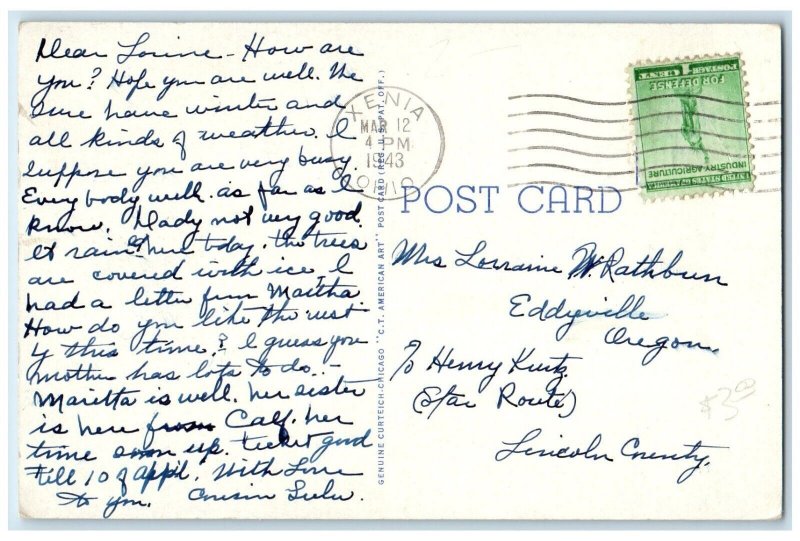 Dear Lorine - How are
you? Hope you are well. We
sure have winter and
all kinds of weather. I
suppose you are very busy.
Every body well as far as I
know. Dady not very good.
It rained here today. the trees
are covered with ice, I
had a letter from Martha.
How do you like the west
by this time? I guess you
mother has lots to do. -
Maritta is well. her sister
is here from Calf. her
time soon up. ticket good
till 10 of appl. With Love
to you. Cousin Lulu.
GENUINE CURTEICH-CHICAGO "C.T. AMERICAN ART" POST CARD (REG. U.S. PAT. OFF.)
XENIA
MAR 12
4 PM
1943
OHIO
UNITED STATES OF AMERICA
INDUSTRY AGRICULTURE
FOR DEFENSE
1 CENT
POSTAGE
POST CARD
Mrs Lorraine W. Rathbun
Eddyville
Oregon
℅ Henry Kurtz
(Star Route)
Lincoln County.
$3.00